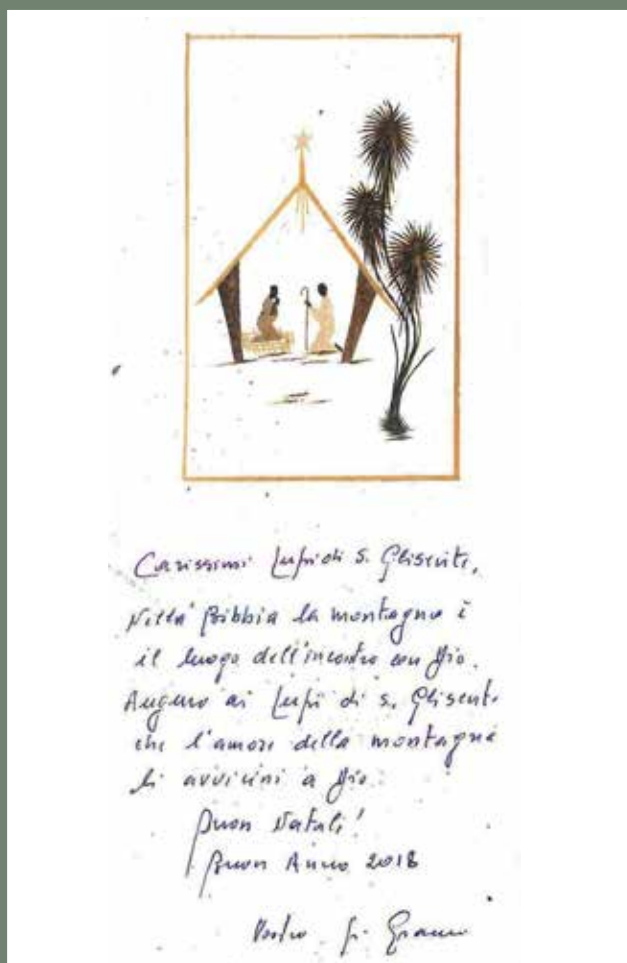 Carissimi Lupi di S. Glisente,
Nella Bibbia la montagna è
il luogo dell'incontro con Dio.
Auguro ai Lupi di S. Glisente
che l'amore della montagna
li avvicini a Dio.
Buon Natale!
Buon Anno 2018
Vostro